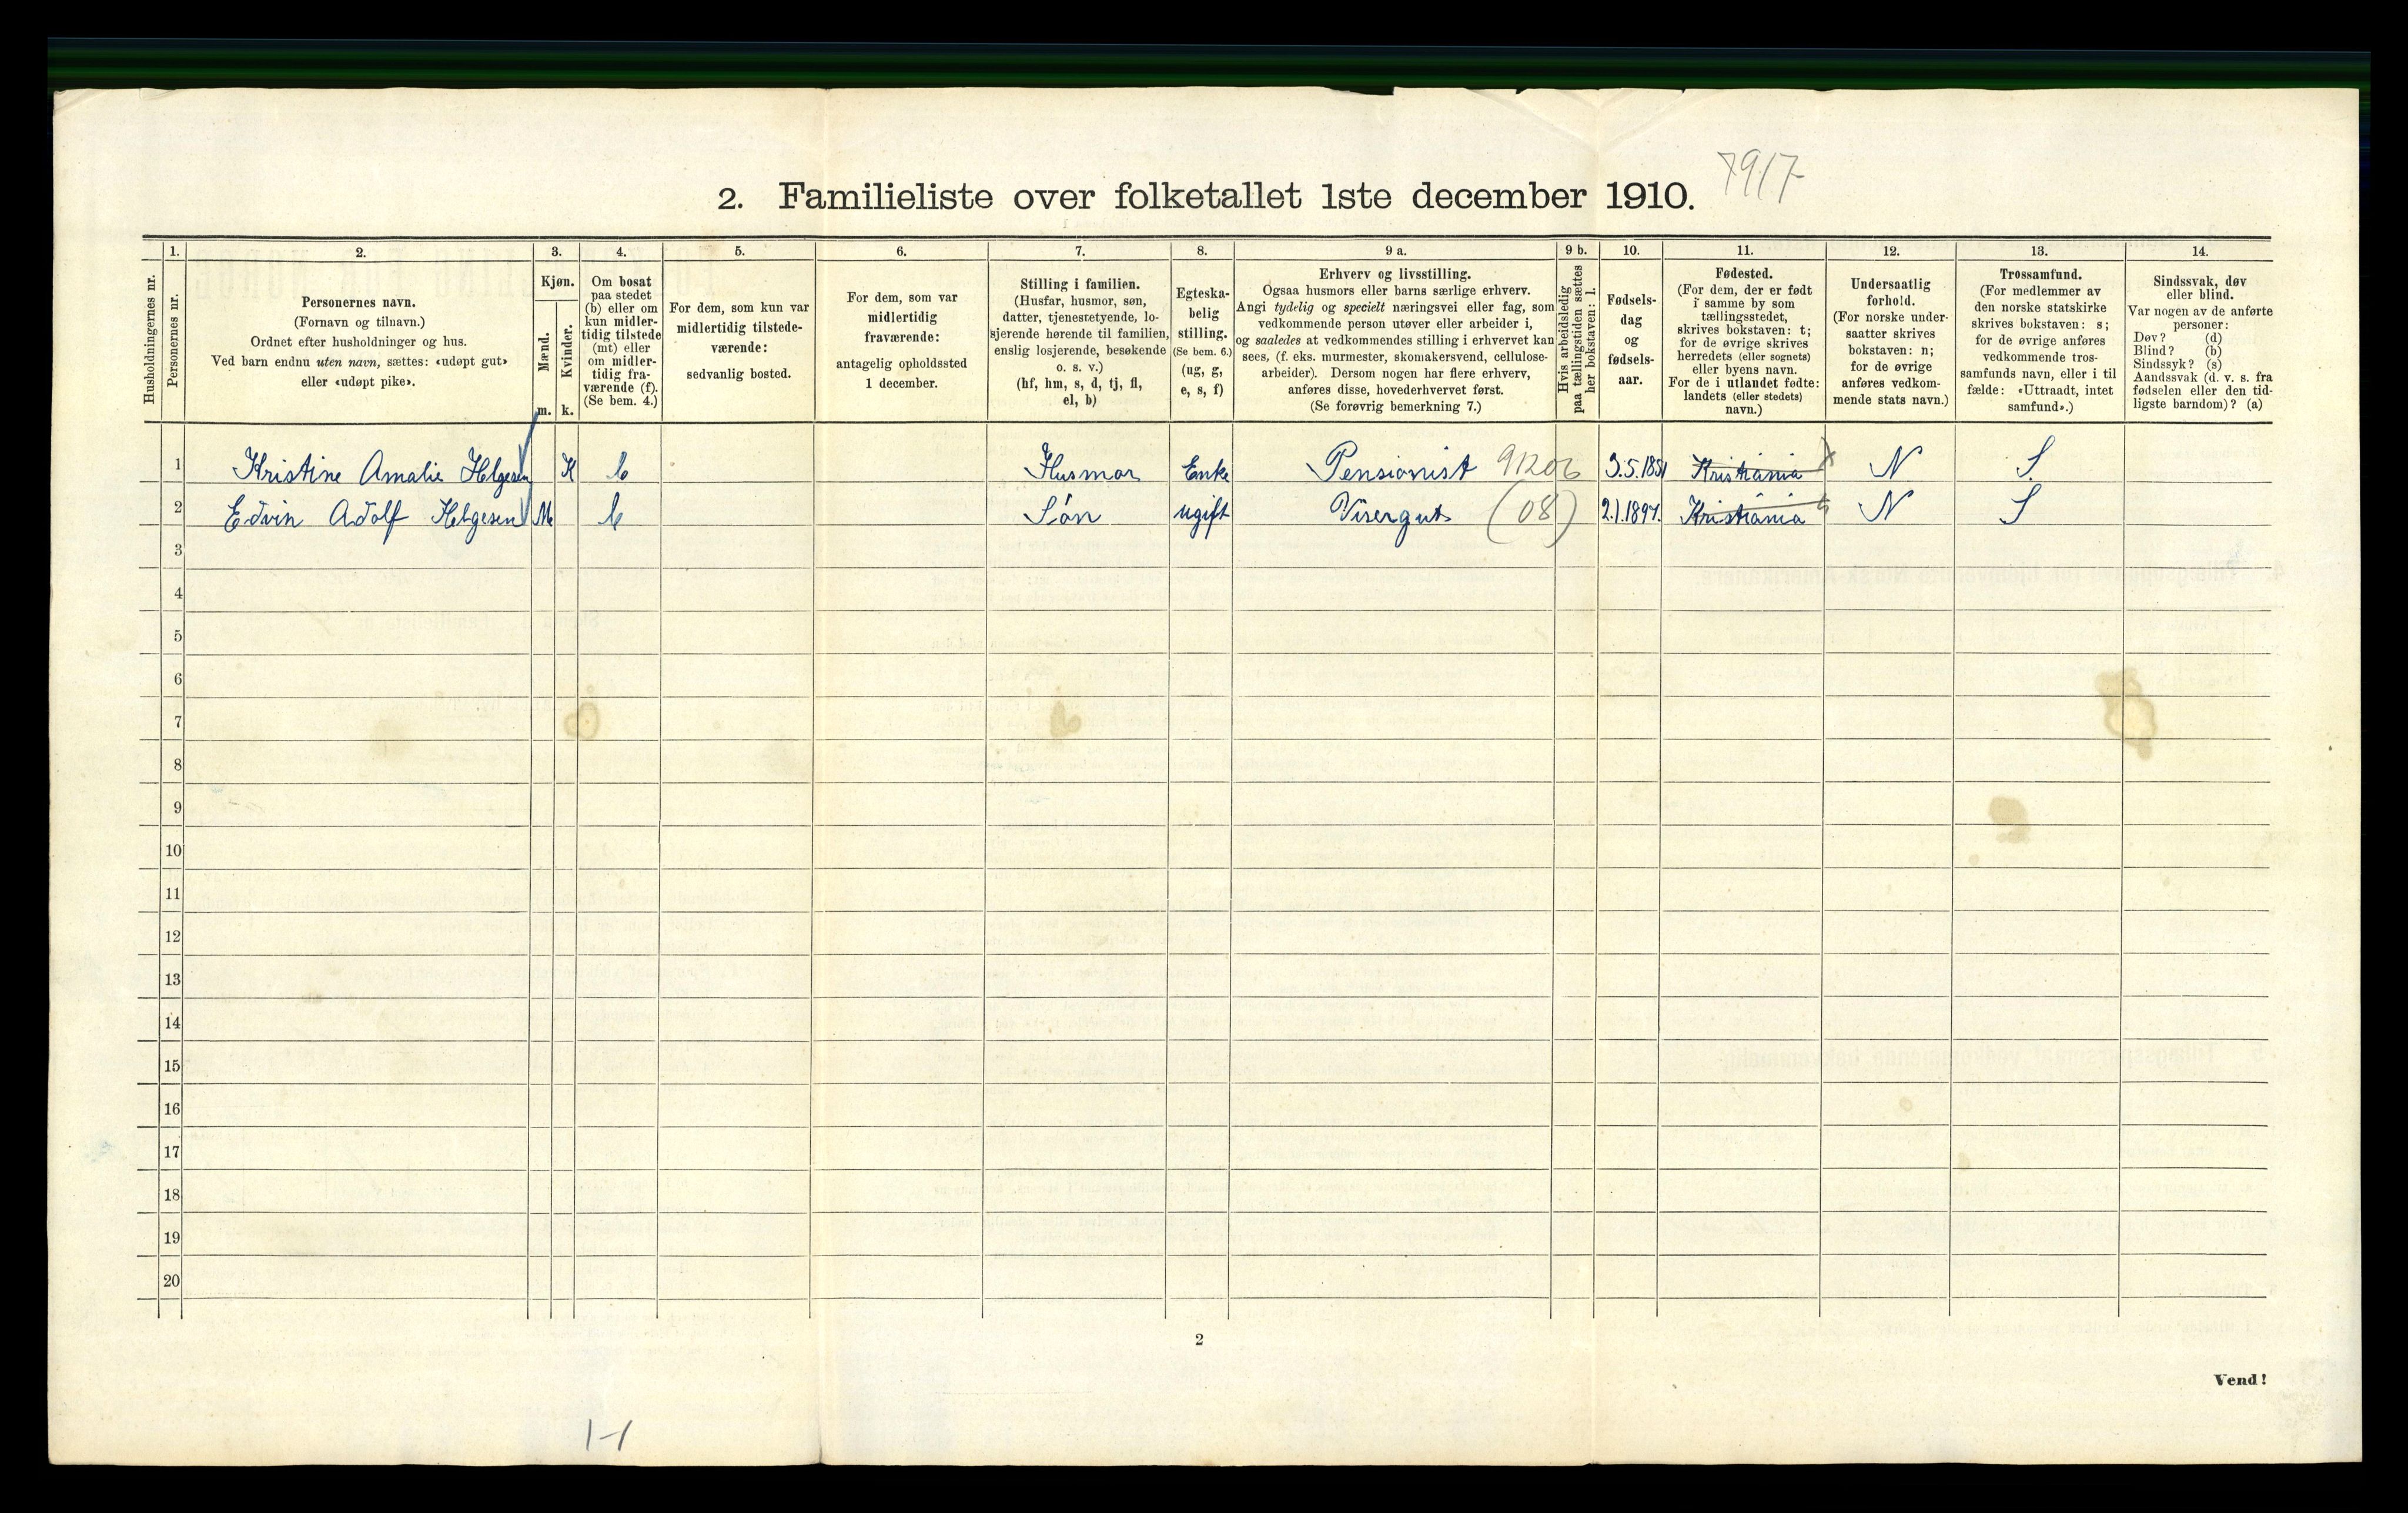 7917
2. Familieliste over folketallet 1ste december 1910.
1. 2. 3. 4. 5. 6. 7. 8. 9 a. 9 b. 10. 11. 12. 13. 14.
Husholdningernes nr.
Personernes nr.
Personernes navn.
(Fornavn og tilnavn.)
Ordnet efter husholdninger og hus.
Ved barn endnu uten navn, sættes: «udøpt gut»
eller «udøpt pike».
Kjøn.
Mænd.
Kvinder.
m. k.
Om bosat
paa stedet
(b) eller om
kun midler-
tidig tilstede
(mt) eller
om midler-
tidig fra-
værende (f).
(Se bem. 4.)
For dem, som kun var
midlertidig tilstede-
værende:
sedvanlig bosted.
For dem, som var
midlertidig
fraværende:
antagelig opholdssted
1 december.
Stilling i familien.
(Husfar, husmor, søn,
datter, tjenestetyende, lo-
sjerende hørende til familien,
enslig losjerende, besøkende
o. s. v.)
(hf, hm, s, d, tj, fl,
el, b)
Egteska-
belig
stilling.
(Se bem. 6.)
(ug, g,
e, s, f)
Erhverv og livsstilling.
Ogsaa husmors eller barns særlige erhverv.
Angi tydelig og specielt næringsvei eller fag, som
vedkommende person utøver eller arbeider i,
og saaledes at vedkommendes stilling i erhvervet kan
sees, (f. eks. murmester, skomakersvend, cellulose-
arbeider). Dersom nogen har flere erhverv,
anføres disse, hovederhvervet først.
(Se forøvrig bemerkning 7.)
Hvis arbeidsledig
paa tællingstiden sættes
her bokstaven: l.
Fødsels-
dag
og
fødsels-
aar.
Fødested.
(For dem, der er født
i samme by som
tællingsstedet,
skrives bokstaven: t;
for de øvrige skrives
herredets (eller sognets)
eller byens navn.
For de i utlandet fødte:
landets (eller stedets)
navn.)
Undersaatlig
forhold.
(For norske under-
saatter skrives
bokstaven: n;
for de øvrige
anføres vedkom-
mende stats navn.)
Trossamfund.
(For medlemmer av
den norske statskirke
skrives bokstaven: s;
for de øvrige anføres
vedkommende tros-
samfunds navn, eller i til
fælde: «Uttraadt, intet
samfund».)
Sindssvak, døv
eller blind.
Var nogen av de anførte
personer:
Døv? (d)
Blind? (b)
Sindssyk? (s)
Aandssvak (d. v. s. fra
fødselen eller den tid-
ligste barndom)? (a)
1 Kristine Amalie Helgesen K b Husmor Enke Pensionist 91206 3.5.1851 Kristiania N S
2 Edvin Adolf Helgesen M b Søn ugift Visergut (08) 2.1.1897. Kristiania t N S
3
4
5
6
7
8
9
10
11
12
13
14
15
16
17
18
19
20
2
Vend!
1-1